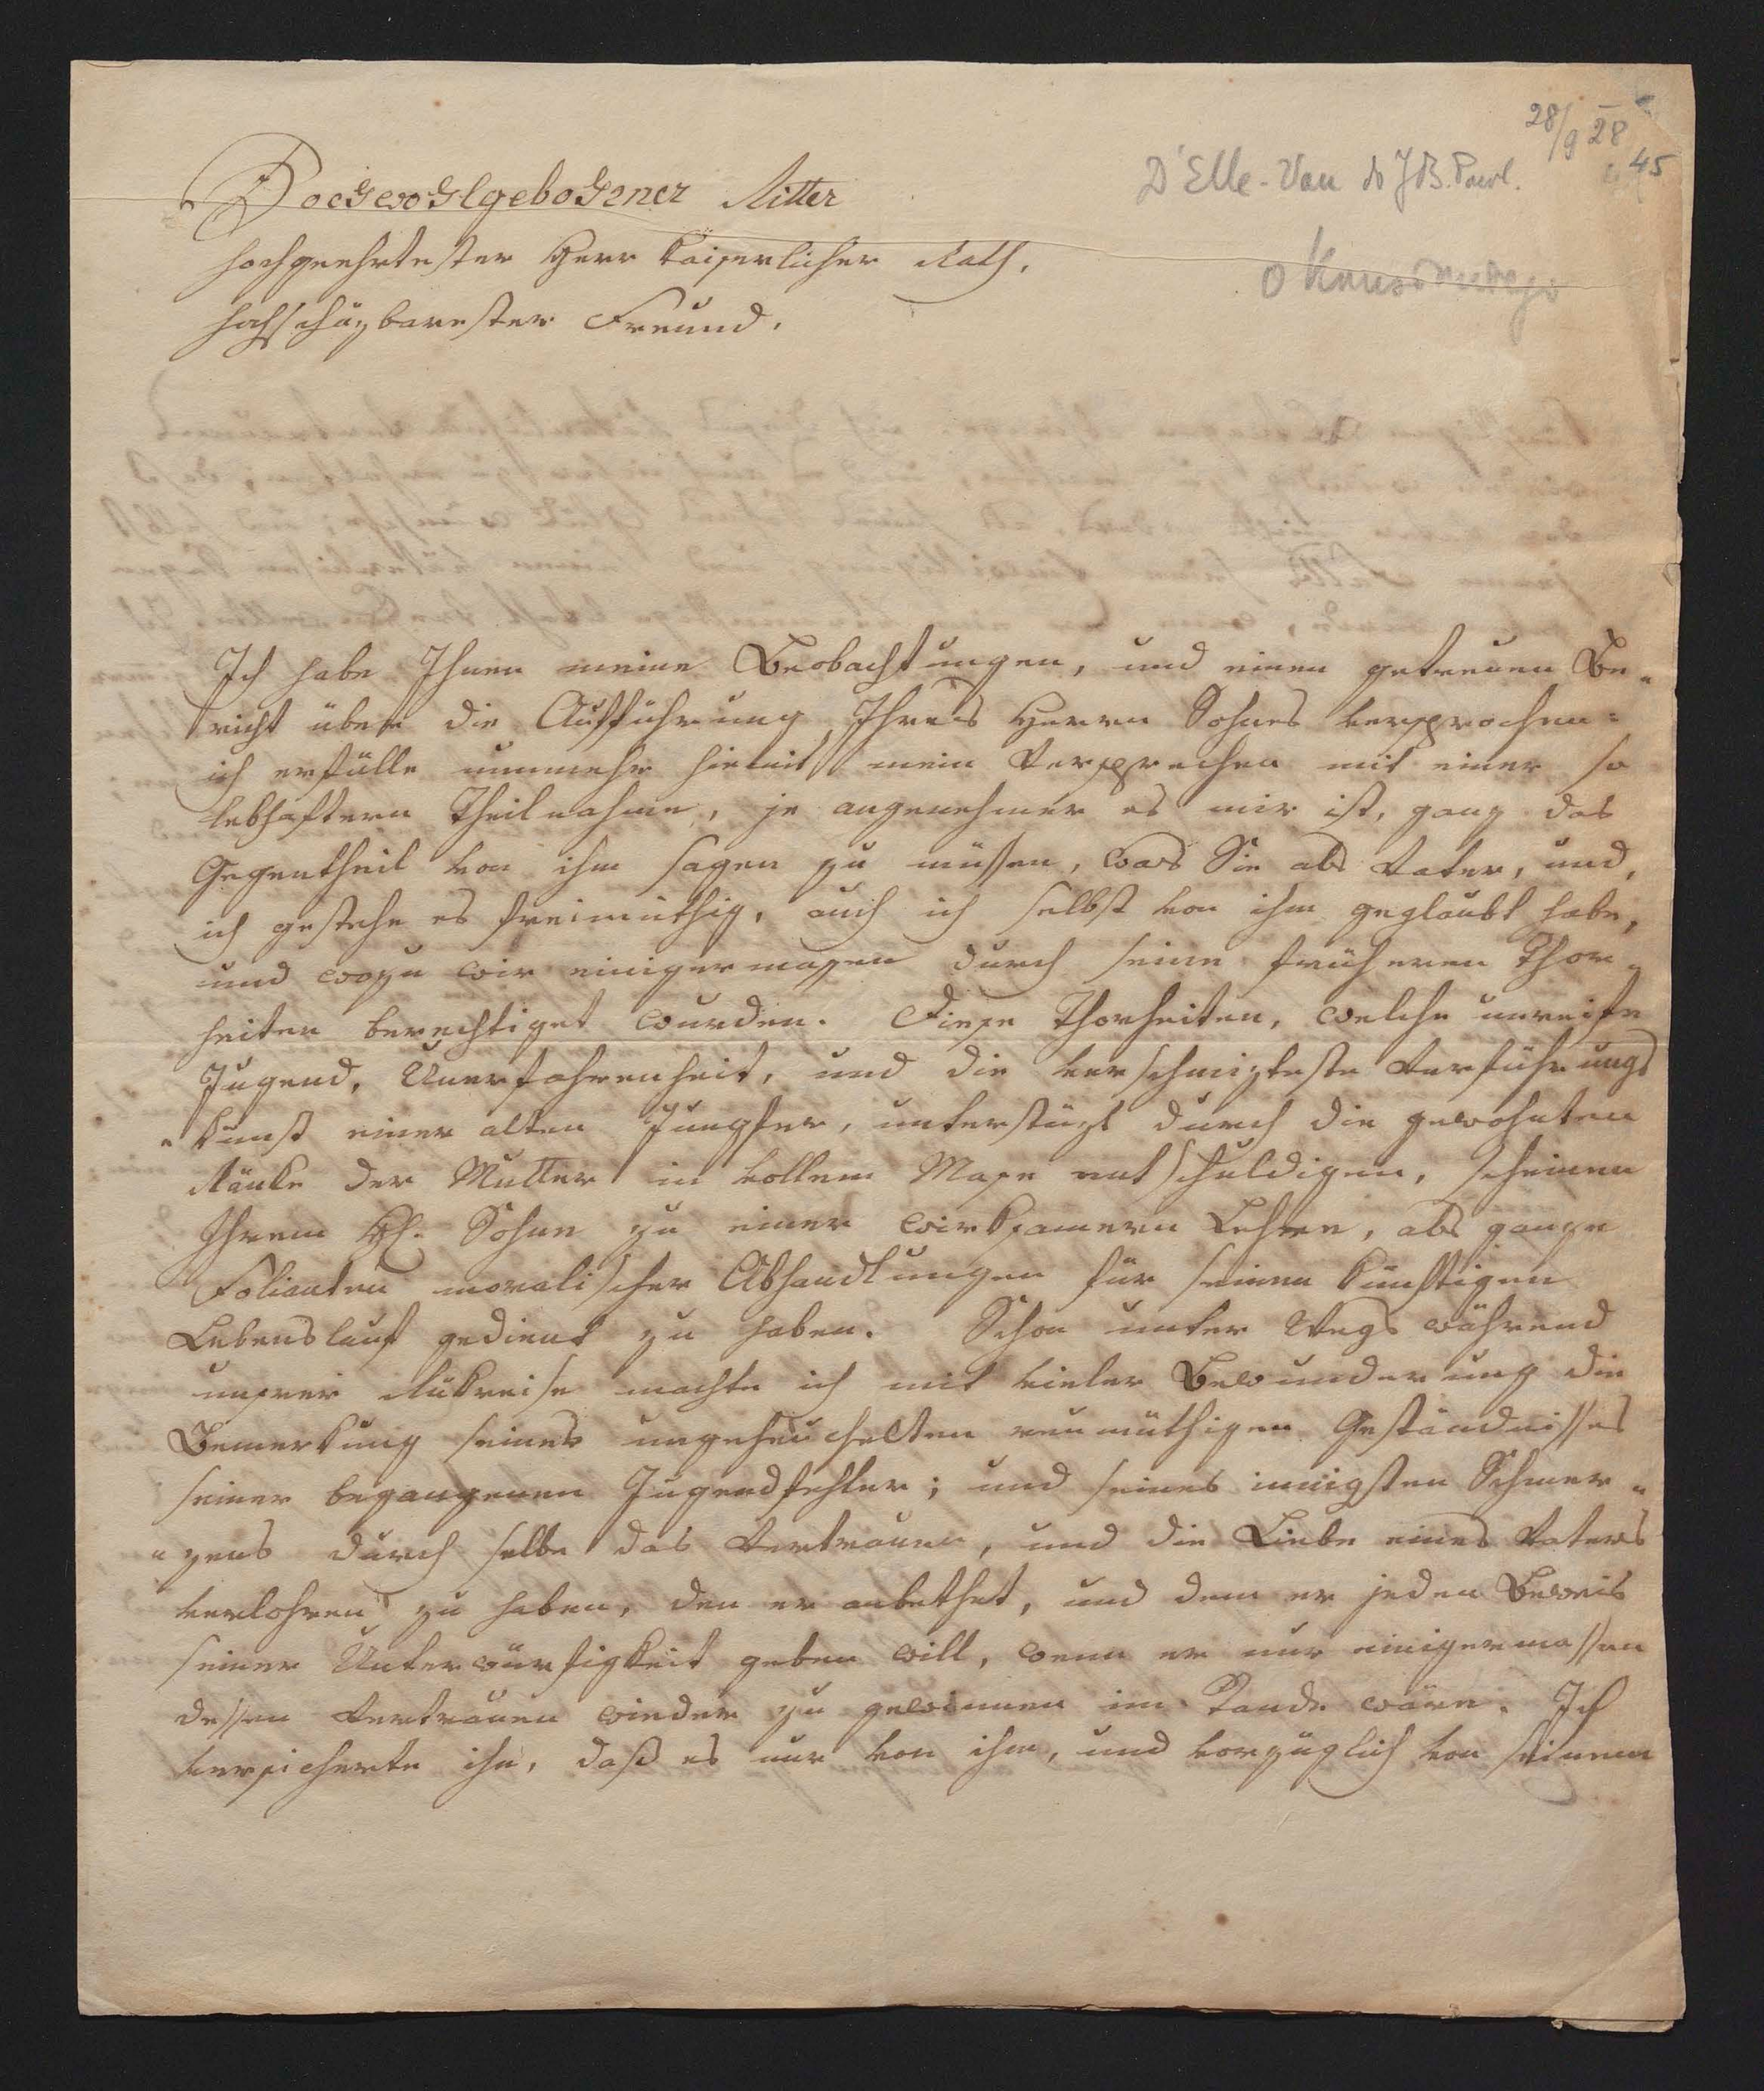 28/9 28
45
D'Elle-Vau do J. B. Pawl.
Hochwohlgebohrner Ritter
hochgeehrtester Herr kaiserlicher Rath,
hochschäzbarester Freund.
Ich habe Ihnen meine Beobachtungen, und einen getreuen Be„
richt über die Aufführung Ihres Herrn Sohnes versprochen:
ich erfülle nunmehr hiemit mein Versprechen mit einer so
lebhaftern Theilnahme, je angenehmer es mir ist, ganz das
Gegentheil von ihm sagen zu müssen, was Sie als Vater, und,
ich gestehe es freimüthig, auch ich selbst von ihm geglaubt habe,
und wozu wir einigermaßen durch seine früheren Thor„
heiten berechtiget wurden. Diese Thorheiten, welche unreife
Jugend, Unerfahrenheit, und die verschmizteste Verführungs
„kunst einer alten Jungfer, unterstüzt durch die gewohnten
Ränke der Mutter in vollem Maße entschuldigen, scheinen
Ihrem H. Sohne zu einer wirksamern Lehre, als ganze
Folianten moralischer Abhandlungen für seinen künftigen
Lebenslauf gedient zu haben. Schon unter Wegs während
unsrer Rükreise machte ich mit vieler Bewunderung die
Bemerkung seines ungeheuchelten reumüthigen Geständnisses
seiner begangenen Jugendfehler; und seines innigsten Schmer„
„zens durch selbe das Vertrauen, und die Liebe eines Vaters
verlohren zu haben, den er anbethet, und dem er jeden Beweis
seiner Unterwürfigkeit geben will, wenn er nur einigermassen
dessen Vertrauen wieder zu gewinnen im Stande wäre. Ich
versicherte ihn, daß es nur von ihm, und vorzüglich von seinem